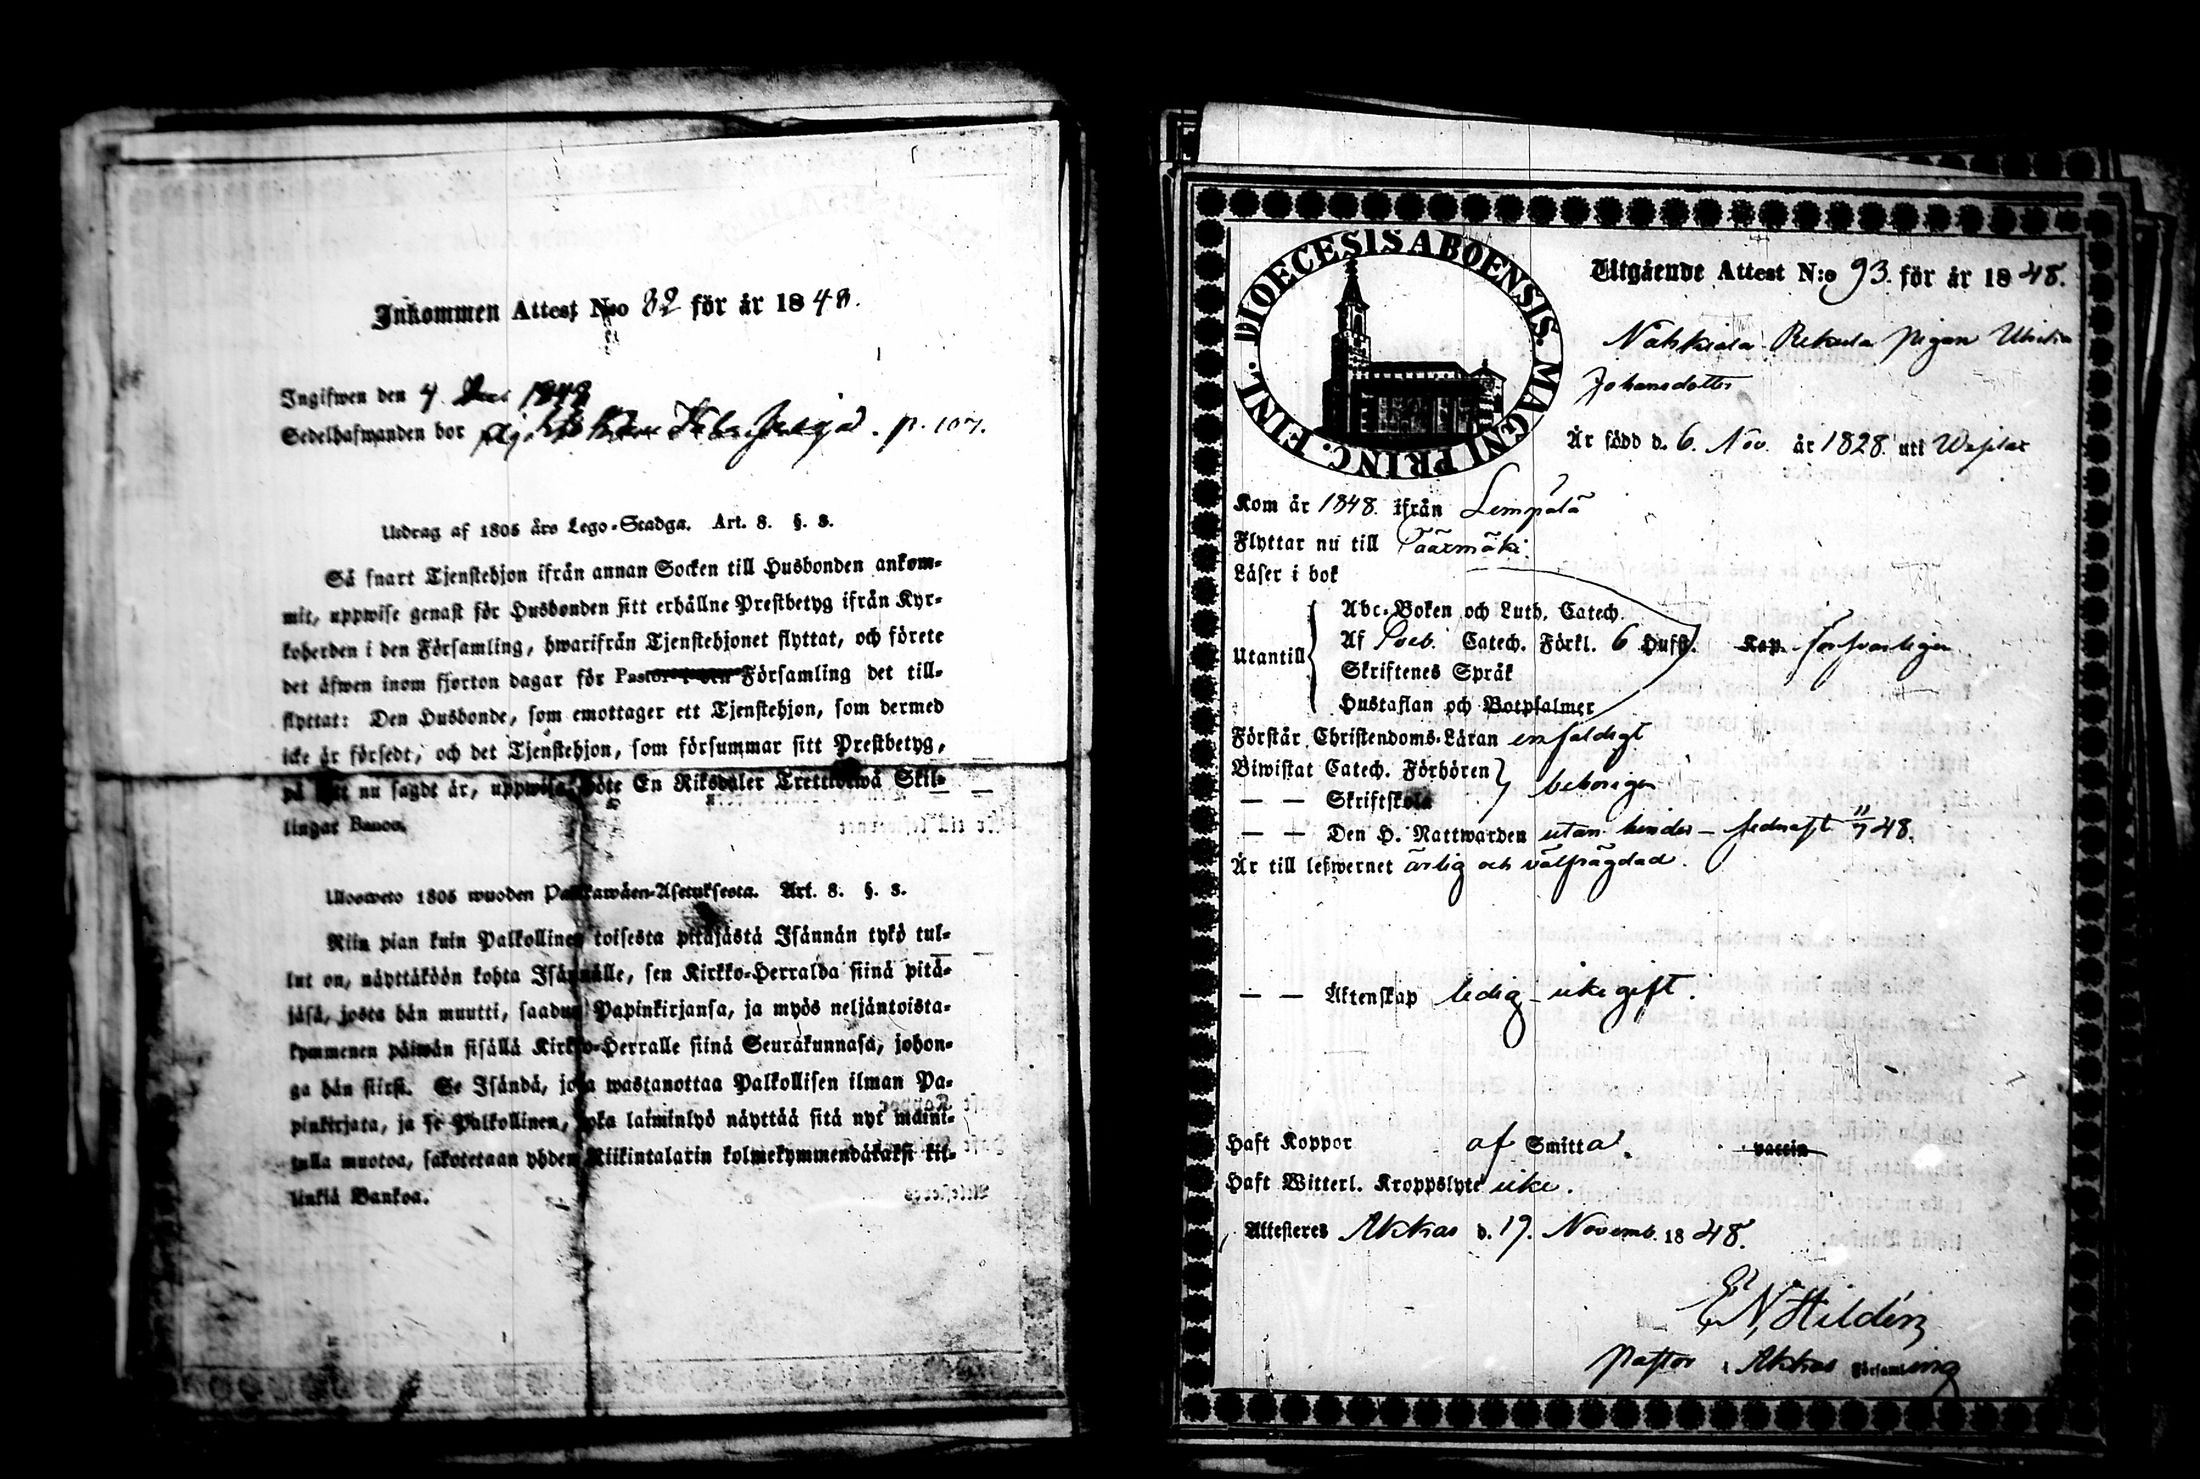 Inkommen Attest N:o 82 för år 1848.
Ingifwen den 4 Dec 1848
Sedelhafwanden bor p. 107.
Utdrag af 1805 års Lego-Stadga. Art. 8. §. 3.
Så snart Tjenstehjon ifrån annan Socken till Husbonden ankom-
mit, uppwise genast för Husbonden sitt erhållne Prestbetyg ifrån Kyr-
koherden i den Församling, hwarifrån Tjenstehjonet flyttat, och förete
det äfwen inom fjorton dagar för Pastor i den Församling det till-
flyttat: Den Husbonde, som emottager ett Tjenstehjon, som dermed
icke är försedt, och det Tjenstehjon, som försummar sitt Prestbetyg,
på sätt nu sagdt är, uppwisa, böte En Riksdaler Trettiotwå Skil-
lingar Banco.
Ulosweto 1805 wuoden Palkkawäen-Asetuksesta. Art. 8. §. 3.
Niin pian kuin Palkollinen toisesta pitäjästä Isännän tykö tul-
lut on, näyttäköön kohta Isännälle, sen Kirkko-Herralda siinä pitä-
jäsä, josta hän muutti, saadun Papinkirjansa, ja myös neljäntoista-
kymmenen päiwän sisällä Kirkko-Herralle siinä Seurakunnasa, johon-
ga hän siirsi. Se Isändä, joka wastanottaa Palkollisen ilman Pa-
pinkirjata, ja se Palkollinen, joka laiminlyö näyttää sitä nyt maini-
tulla muotoa, sakotetaan yhden Riikintalarin kolmekymmendäkaksi kil-
linkiä Bankoa.
DIOECESIS ABOENSIS. MAGNI PRINC. FINL.
Utgående Attest N:o 93. för år 1848.
pigan
Johansdotter
Är född d. 6. Nov. år 1828. uti
Kom år 1848. ifrån Lempälä
Flyttar nu till Säärmäki
Läser i bok
Utantill
Abc-Boken och Luth. Catech.
Af Catech. Förkl. 6 Hufst. Kap. försvarligen
Skriftenes Språk
Hustaflan och Botpsalmer
Förstår Christendoms-Läran enfaldigt
Biwistat Catech. Förhören behörigen
— — Skriftskola
— — Den H. Nattwarden utan hinder – sednast 11/7 48.
Är till lefwernet ärlig och välfrägdad.
— — Äktenskap ledig – icke gift.
Haft Koppor af Smitta. vaccin
Haft Witterl. Kroppslyte icke.
Attesteres Akkas d. 19. Novemb. 1848.
E. N. Hildén
Pastor i Akkas Församling